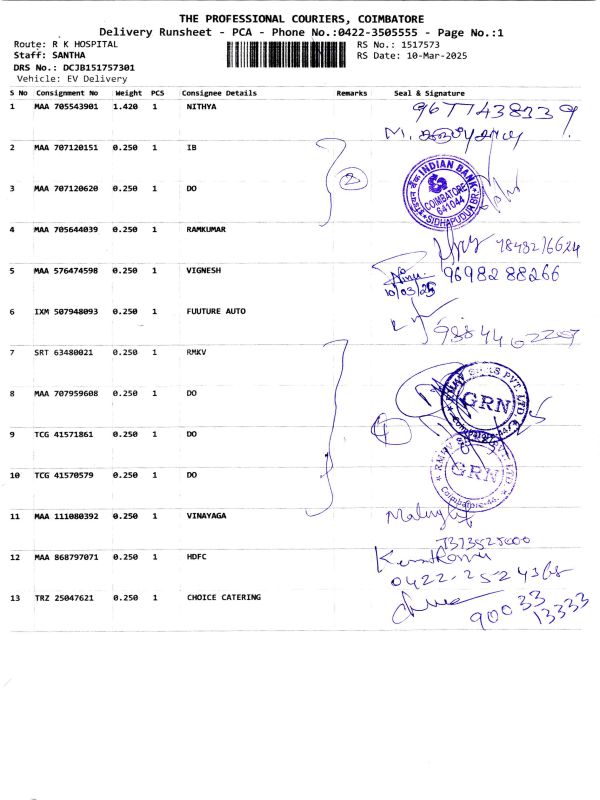 THE PROFESSIONAL COURIERS, COIMBATORE
Delivery Runsheet - PCA - Phone No.:0422-3505555 - Page No.:1
Route: R K HOSPITAL RS No.: 1517573
Staff: SANTHA RS Date: 10-Mar-2025
DRS No.: DCJB151757301
Vehicle: EV Delivery
S No Consignment No Weight PCS Consignee Details Remarks Seal & Signature
1 MAA 705543901 1.420 1 NITHYA
M.
2 MAA 707120151 0.250 1 IB
2
INDIAN BANK
COIMBATORE
641044
SIDHAPUDUR BR.
3 MAA 707120620 0.250 1 DO
4 MAA 705644039 0.250 1 RAMKUMAR
5 MAA 576474598 0.250 1 VIGNESH 9698288266
10/03/25
6 IXM 507948093 0.250 1 FUUTURE AUTO
7 SRT 63480021 0.250 1 RMKV
8 MAA 707959608 0.250 1 DO
GRN
9 TCG 41571861 0.250 1 DO
4
10 TCG 41570579 0.250 1 DO
GRN
11 MAA 111080392 0.250 1 VINAYAGA
12 MAA 868797071 0.250 1 HDFC
13 TRZ 25047621 0.250 1 CHOICE CATERING
90033
13333